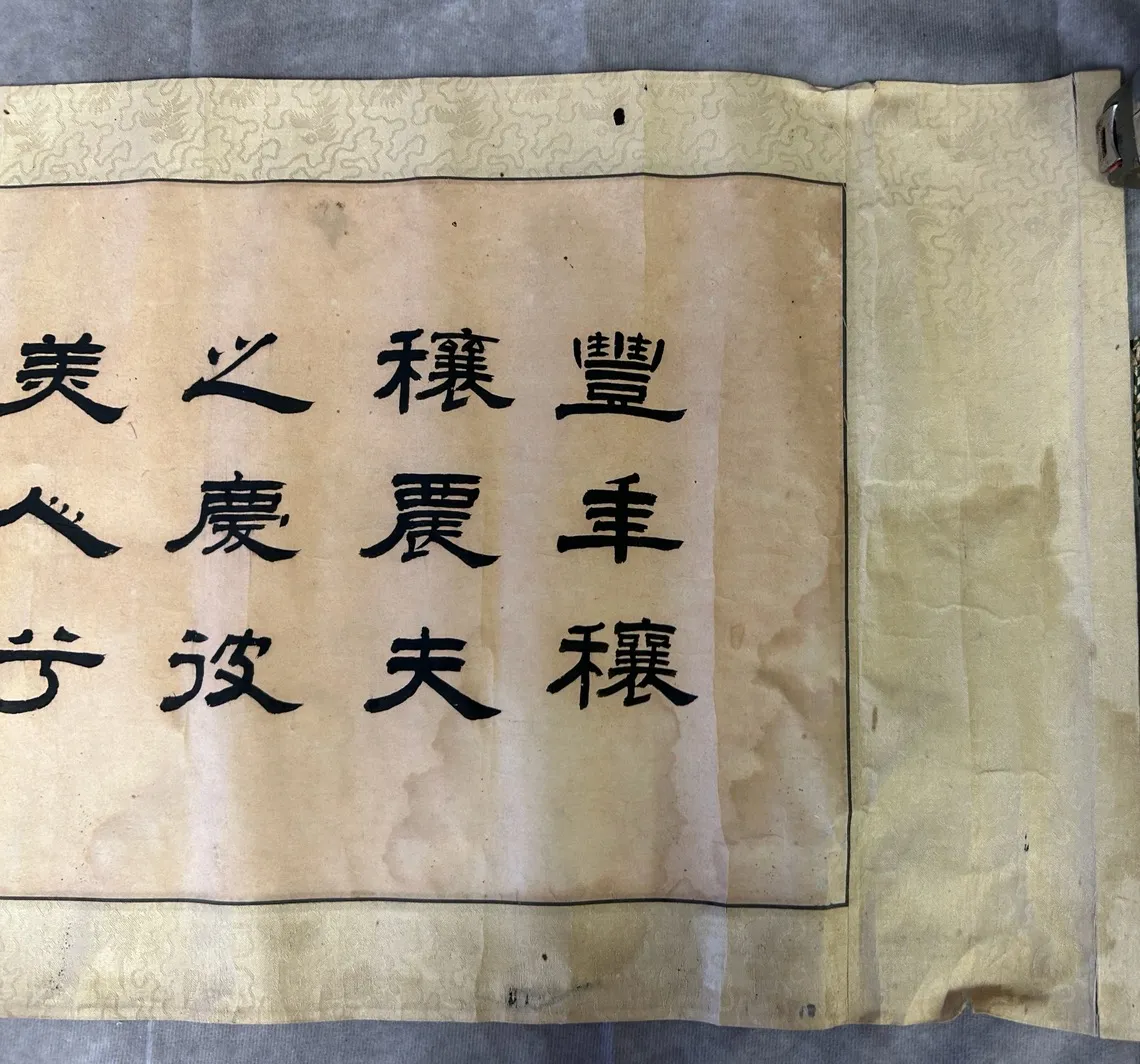 豐年穰
穰農夫
之慶彼
美人兮